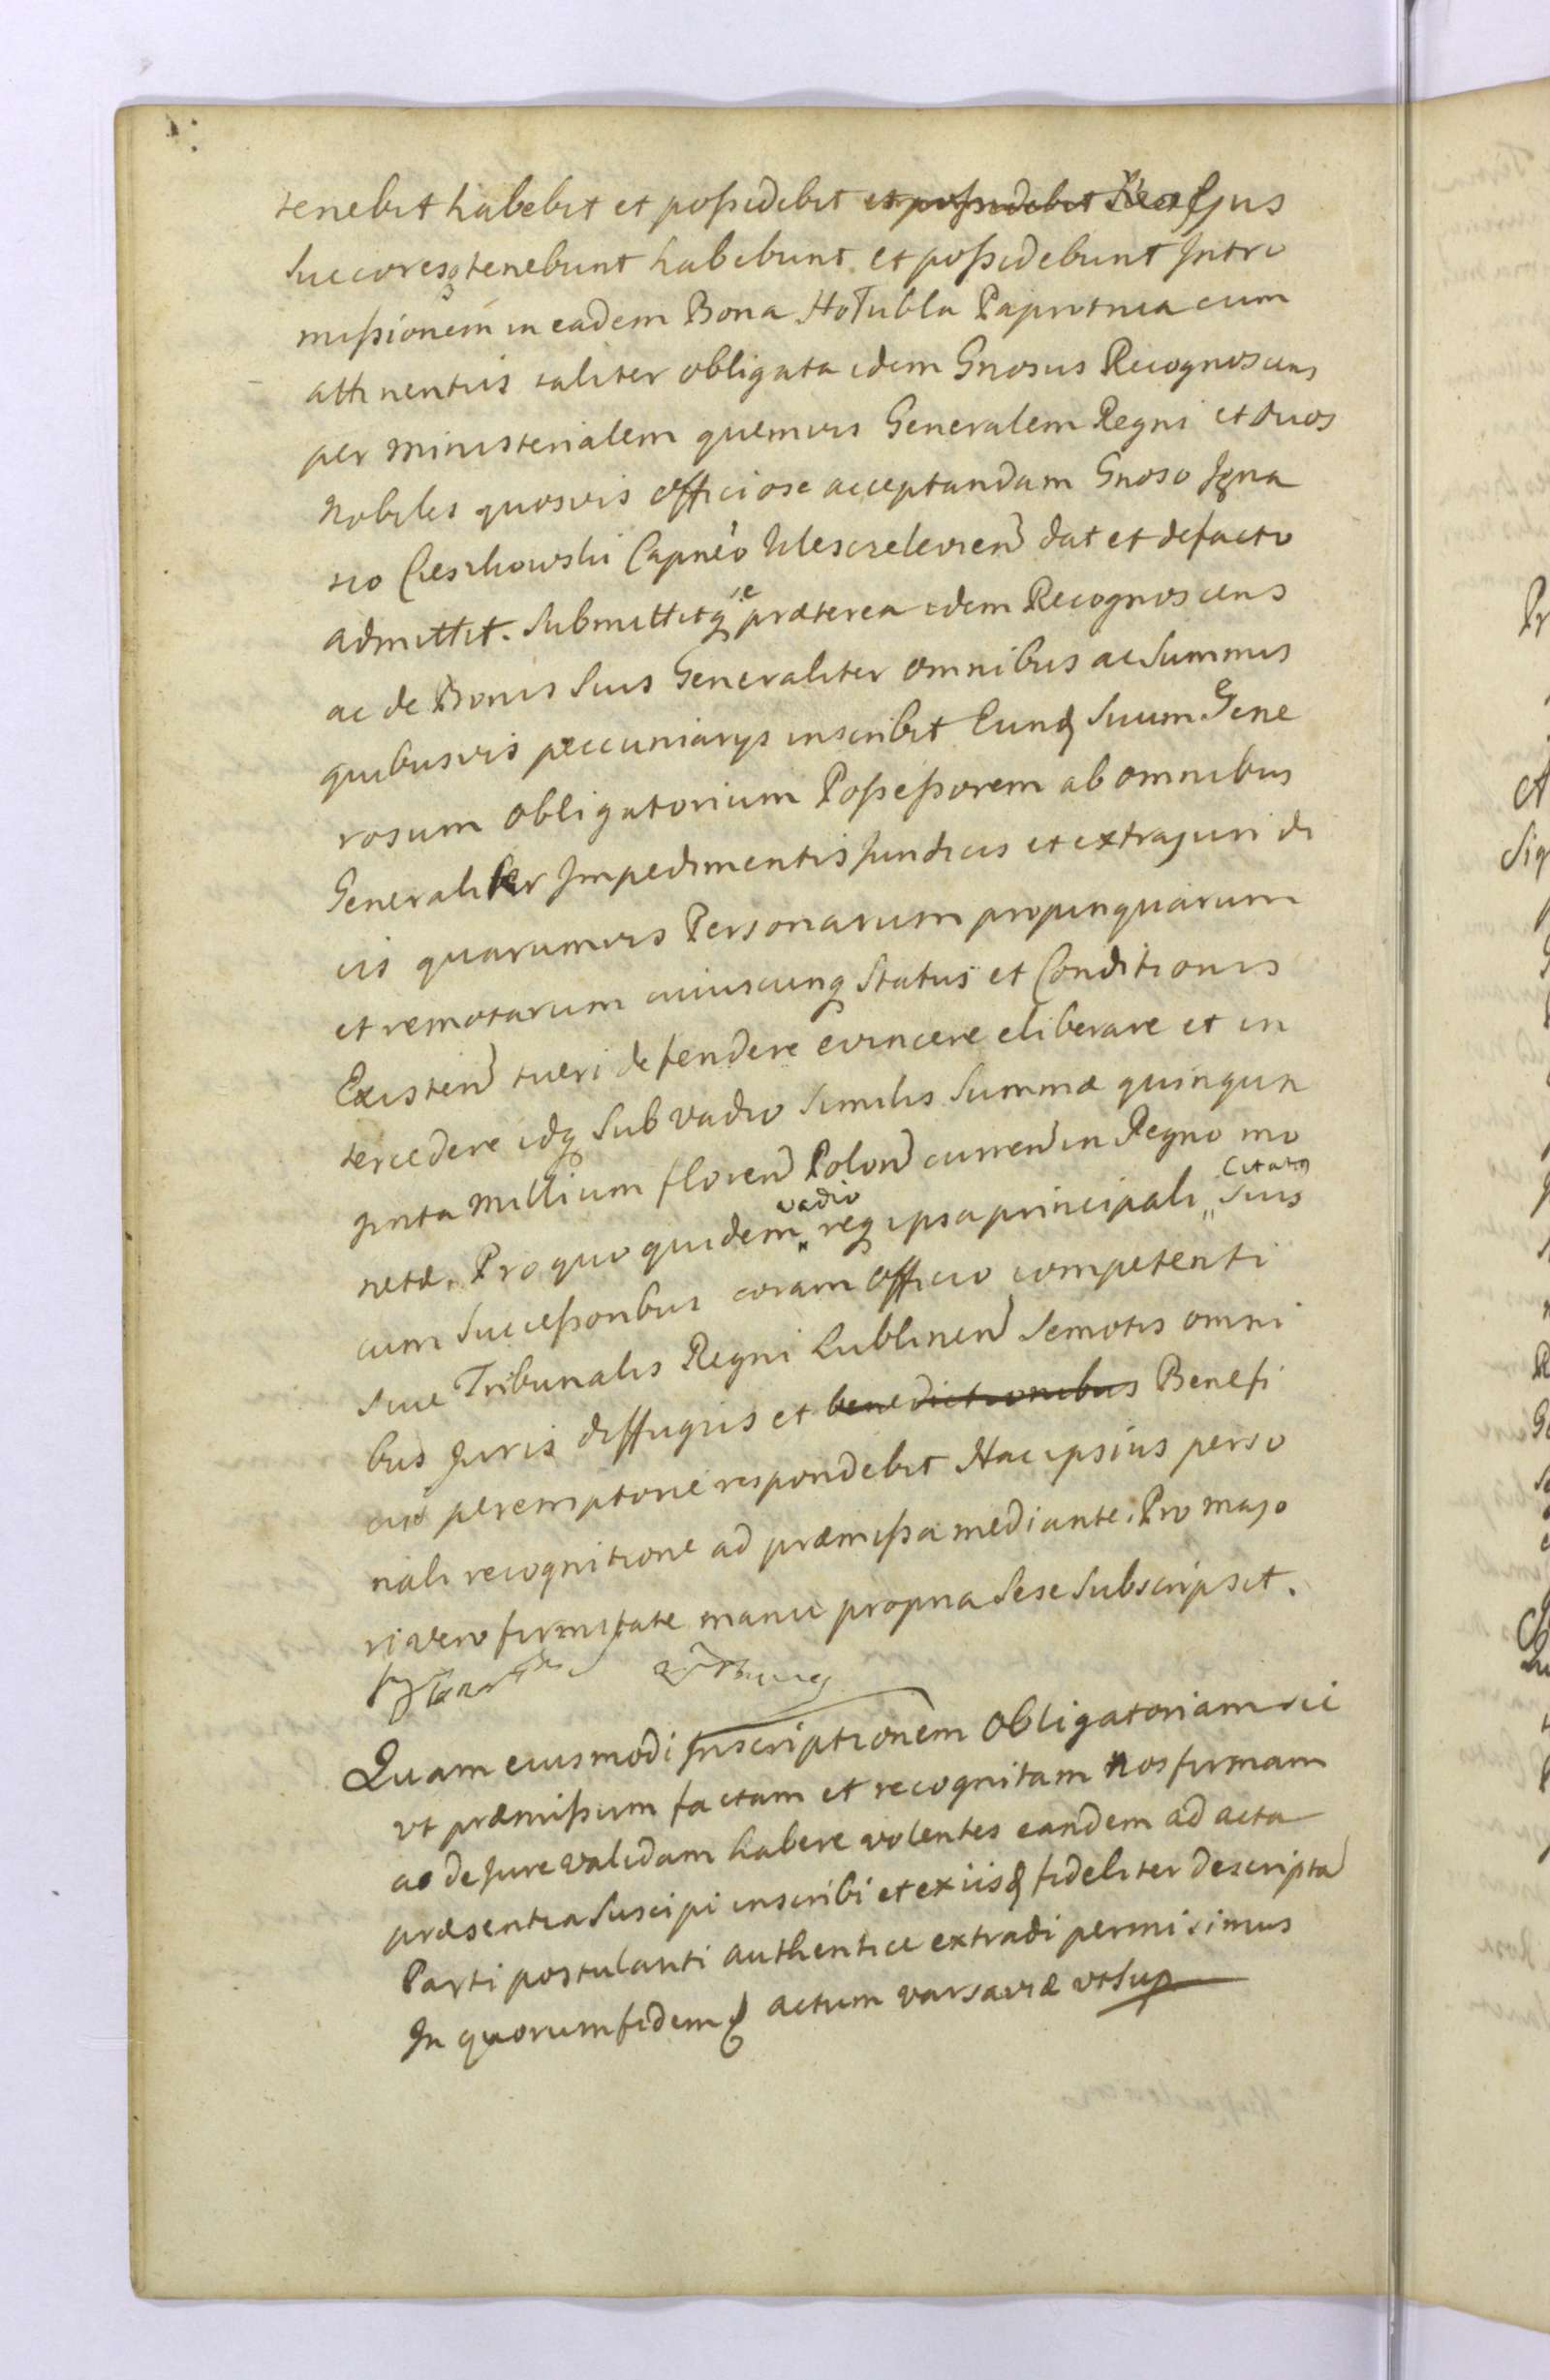 tenebit habebit et possidebit et possidebit Ejus
Succores tenebunt habebunt et possidebunt Intro
missionem in eadem Bona Hołubla Paprotnia cum
attinentiis taliter obligata idem Gnosus Recognoscens
per ministerialem quemvis Generalem Regni et duos
Nobiles quosvis officiose acceptandam Gnoso Igna
tio Cieszkowski Capneo Klesczelevien dat et defacto
admittit. Submittitq se præterea idem Recognoscens
ac de Bonis Suis Generaliter omnibus ac Summis
quibusvis peccuniarys inscribit Eund Suum Gene
rosum obligatorium Possessorem ab omnibus
Generaliter Impedimentis Juridicis et extrajuridi
cis quarumvis Personarum propinquarum
et remotarum cuiuscunq Status et Conditionis
Existen tueri defendere evincere eliberare et in
tercedere idq Sub vadio Similis Summæ quinqua
ginta millium floren Polon curren in Regno mo
netæ. Pro quo quidem vadio req ipsa principali citatq Suis
cum Successoribus coram officio competenti
Sive Tribunalis Regni Lublinen Semotis omni
bus Juris diffugiis et benedictionibus Benefi
ciis peremptorie respondebit Hac ipsius perso
nali recognitione ad præmissa mediante. Pro majo
ri vero firmitate manu propria Sese Subscripsit.
Quam eiusmodi Inscriptionem obligatoriam sic
ut præmissum factam et recognitam nos firmam
ac de Jure validam habere volentes eandem ad acta
præsentia Suscipi inscribi et ex iisd fideliter descripta
Parti postulanti authentice extradi permisimus
In quorum fidem actum varsaviæ ut Sup